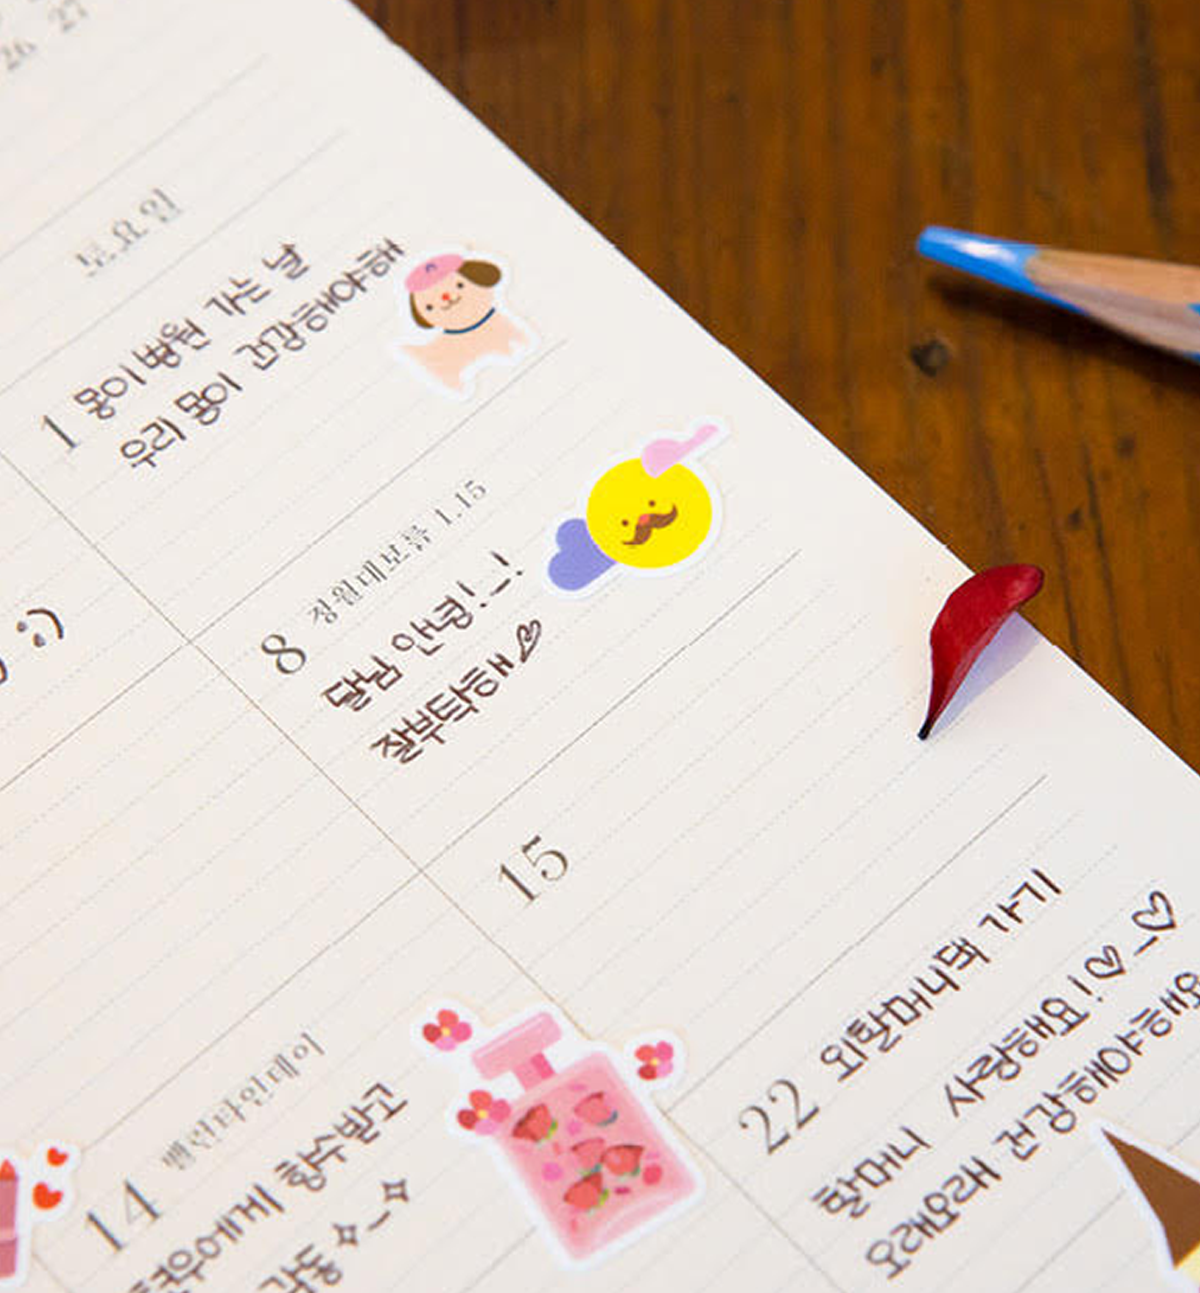 26 27
토요일
1 몽이 병원 가는 날
우리 몽이 건강해야해
:)
8 정월대보름 1.15
달님 안녕!_!
잘부탁해♡
15
22 외할머니댁 가기
할머니 사랑해요!♡-♡
오래오래 건강해야해요
14 밸런타인데이
현우에게 향수받고
감동✧_✧